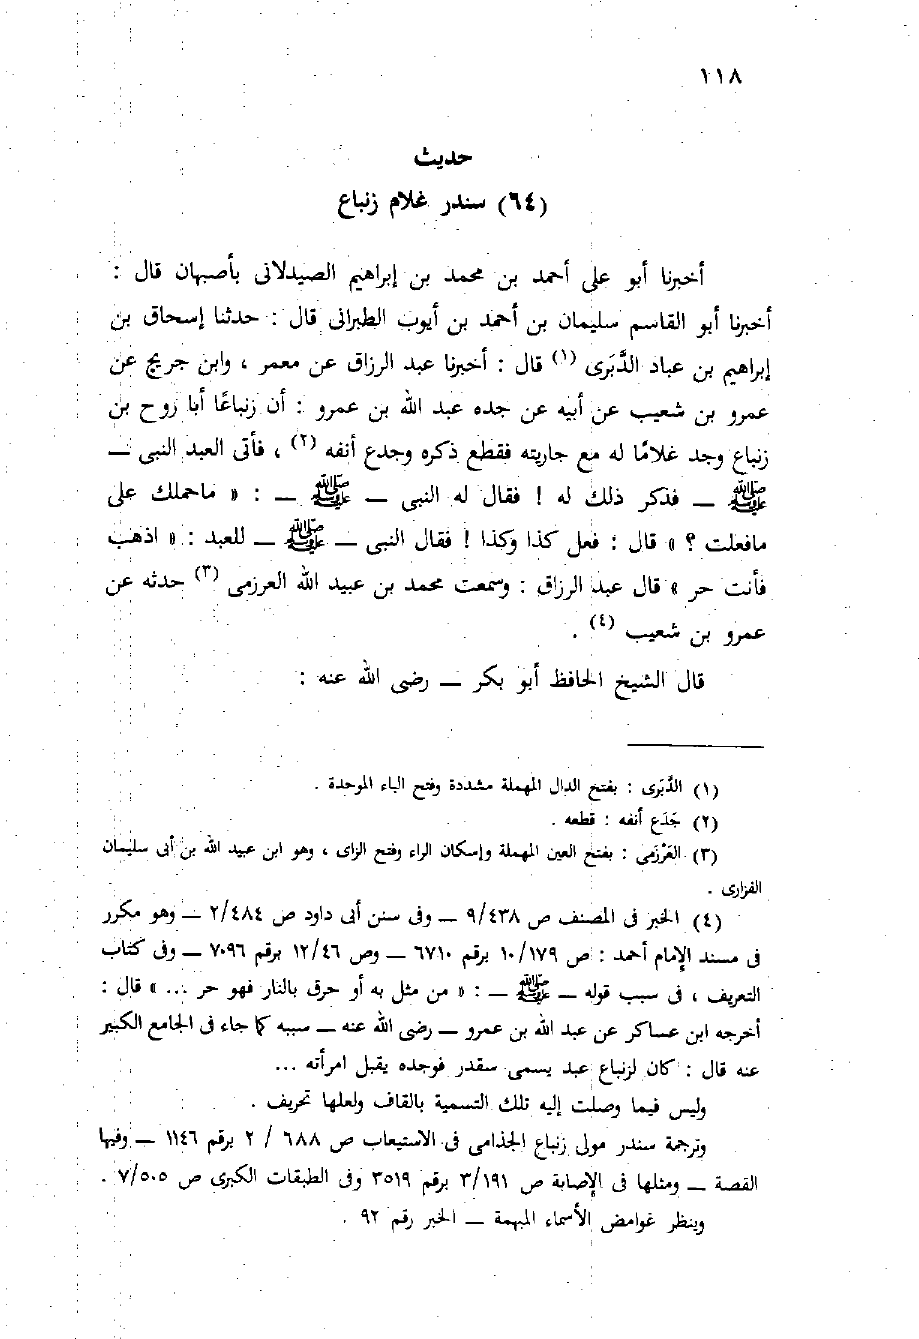 ١١٨
حديث
(٦٤) سندر غلام زنباع
أخبرنا أبو على أحمد بن محمد بن إبراهيم الصيدلانى بأصبهان قال :
أخبرنا أبو القاسم سليمان بن أحمد بن أيوب الطبرانى قال : حدثنا إسحاق بن
إبراهيم بن عباد الدَّبَرى (١) قال : أخبرنا عبد الرزاق عن معمر ، وابن جريج عن
عمرو بن شعيب عن أبيه عن جده عبد الله بن عمرو : أن زنباعًا أبا روح بن
زنباع وجد غلامًا له مع جاريته فقطع ذكره وجدع أنفه (٢) ، فأتى العبد النبى ــ
ﷺ ــ فذكر ذلك له ! فقال له النبى ــ ﷺ ــ : « ماحملك على
مافعلت ؟ » قال : فعل كذا وكذا ! فقال النبى ــ ﷺ ــ للعبد : « اذهب
فأنت حر » قال عبد الرزاق : وسمعت محمد بن عبيد الله العرزمى (٣) حدثه عن
عمرو بن شعيب (٤) .
قال الشيخ الحافظ أبو بكر ــ رضى الله عنه :
(١) الدَّبَرى : بفتح الدال المهملة مشددة وفتح الباء الموحدة .
(٢) جَدَع أنفه : قطعه .
(٣) العَرْزَمى : بفتح العين المهملة وإسكان الراء وفتح الزاى ، وهو ابن عبيد الله بن أبى سليمان
الفزارى .
(٤) الخبر فى المصنف ص ٩/٤٣٨ ــ وفى سنن أبى داود ص ٢/٤٨٤ ــ وهو مكرر
فى مسند الإمام أحمد : ص ١٠/١٧٩ برقم ٦٧١٠ ــ وص ١٢/٤٦ برقم ٧٠٩٦ ــ وفى كتاب
التعريف ، فى سبب قوله ــ ﷺ ــ : « من مثل به أو حرق بالنار فهو حر ... » قال :
أخرجه ابن عساكر عن عبد الله بن عمرو ــ رضى الله عنه ــ سببه كما جاء فى الجامع الكبير
عنه قال : كان لزنباع عبد يسمى سقدر فوجده يقبل امرأته ...
وليس فيما وصلت إليه تلك التسمية بالقاف ولعلها تحريف .
وترجمة سندر مولى زنباع الجذامى فى الاستيعاب ص ٦٨٨ / ٢ برقم ١١٤٦ ــ وفيها
القصة ــ ومثلها فى الإصابة ص ٣/١٩١ برقم ٣٥١٩ وفى الطبقات الكبرى ص ٧/٥٠٥ .
وينظر غوامض الأسماء المبهمة ــ الخبر رقم ٩٢ .